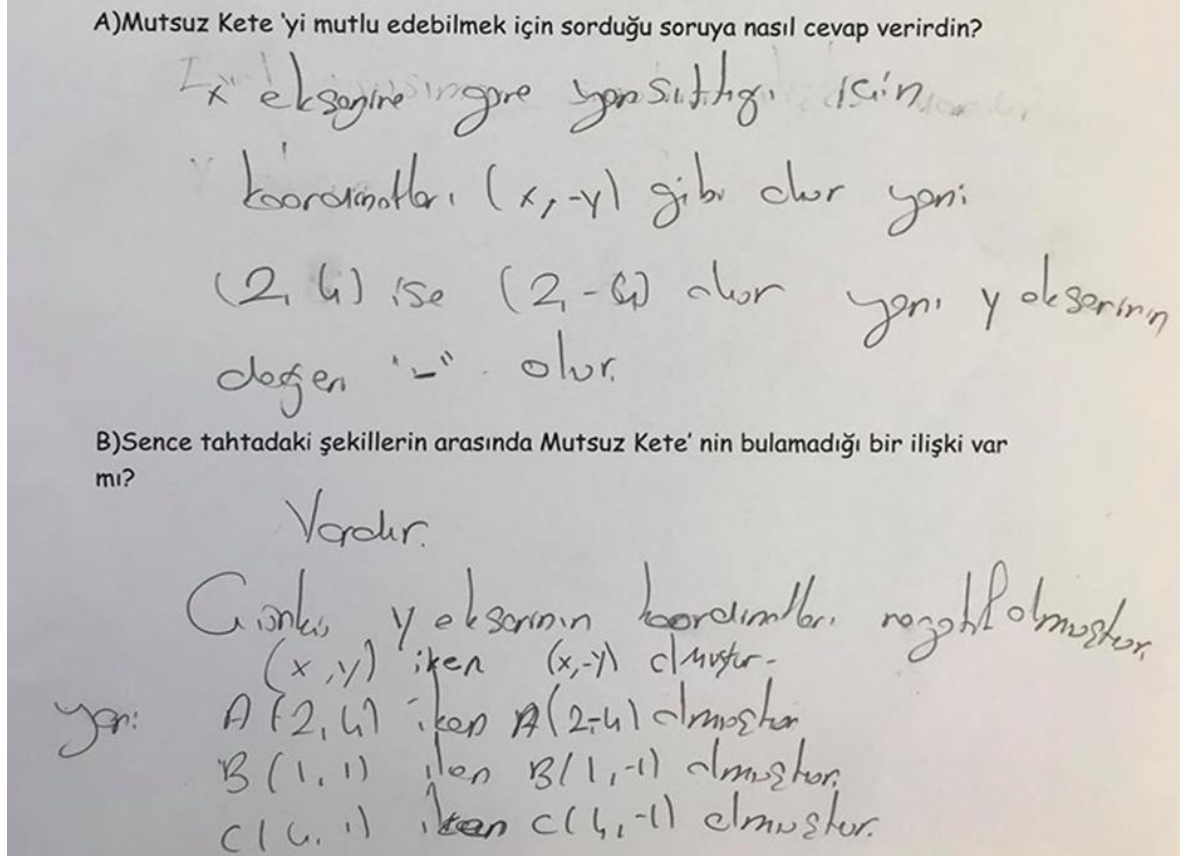 A)Mutsuz Kete 'yi mutlu edebilmek için sorduğu soruya nasıl cevap verirdin?
"x" eksenine göre yansıttığı için
koordinatları (x,-y) gibi olur yani
(2,4) ise (2,-4) olur yani y ekseninin
değeri "-" olur.
B)Sence tahtadaki şekillerin arasında Mutsuz Kete' nin bulamadığı bir ilişki var
mı?
Vardır.
Çünkü y ekseninin koordinatları negatif olmuştur.
(x,y) iken (x,-y) olmuştur.
yani A(2,4) iken A(2-4) olmuştur
B(1,1) iken B(1,-1) olmuştur.
C(4,1) iken C(4,-1) olmuştur.